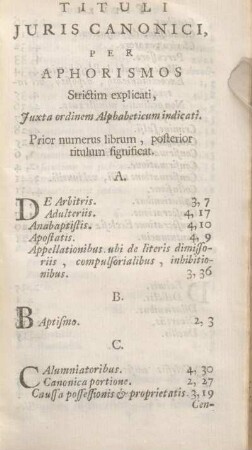 TITULI
JURIS CANONICI,
PER
APHORISMOS
Strictim explicati,
Juxta ordinem Alphabeticum indicati.
Prior numerus librum, posterior
titulum significat.
A.
DE Arbitris. 3, 7
Adulteriis. 4, 17
Anabaptistis. 4, 10
Apostatis. 4, 9
Appellationibus ubi de literis dimisso-
riis, compulsorialibus, inhibitio-
nibus. 3, 36
B.
BAptismo. 2, 3
C.
CAlumniatoribus. 4, 30
Canonica portione. 2, 27
Caussa possessionis & proprietatis. 3, 19
Con-